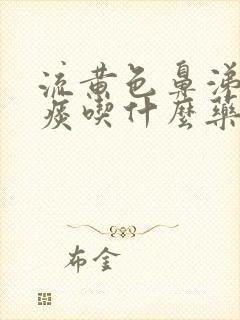 流黄色鼻涕
痰喫什麼藥
布金